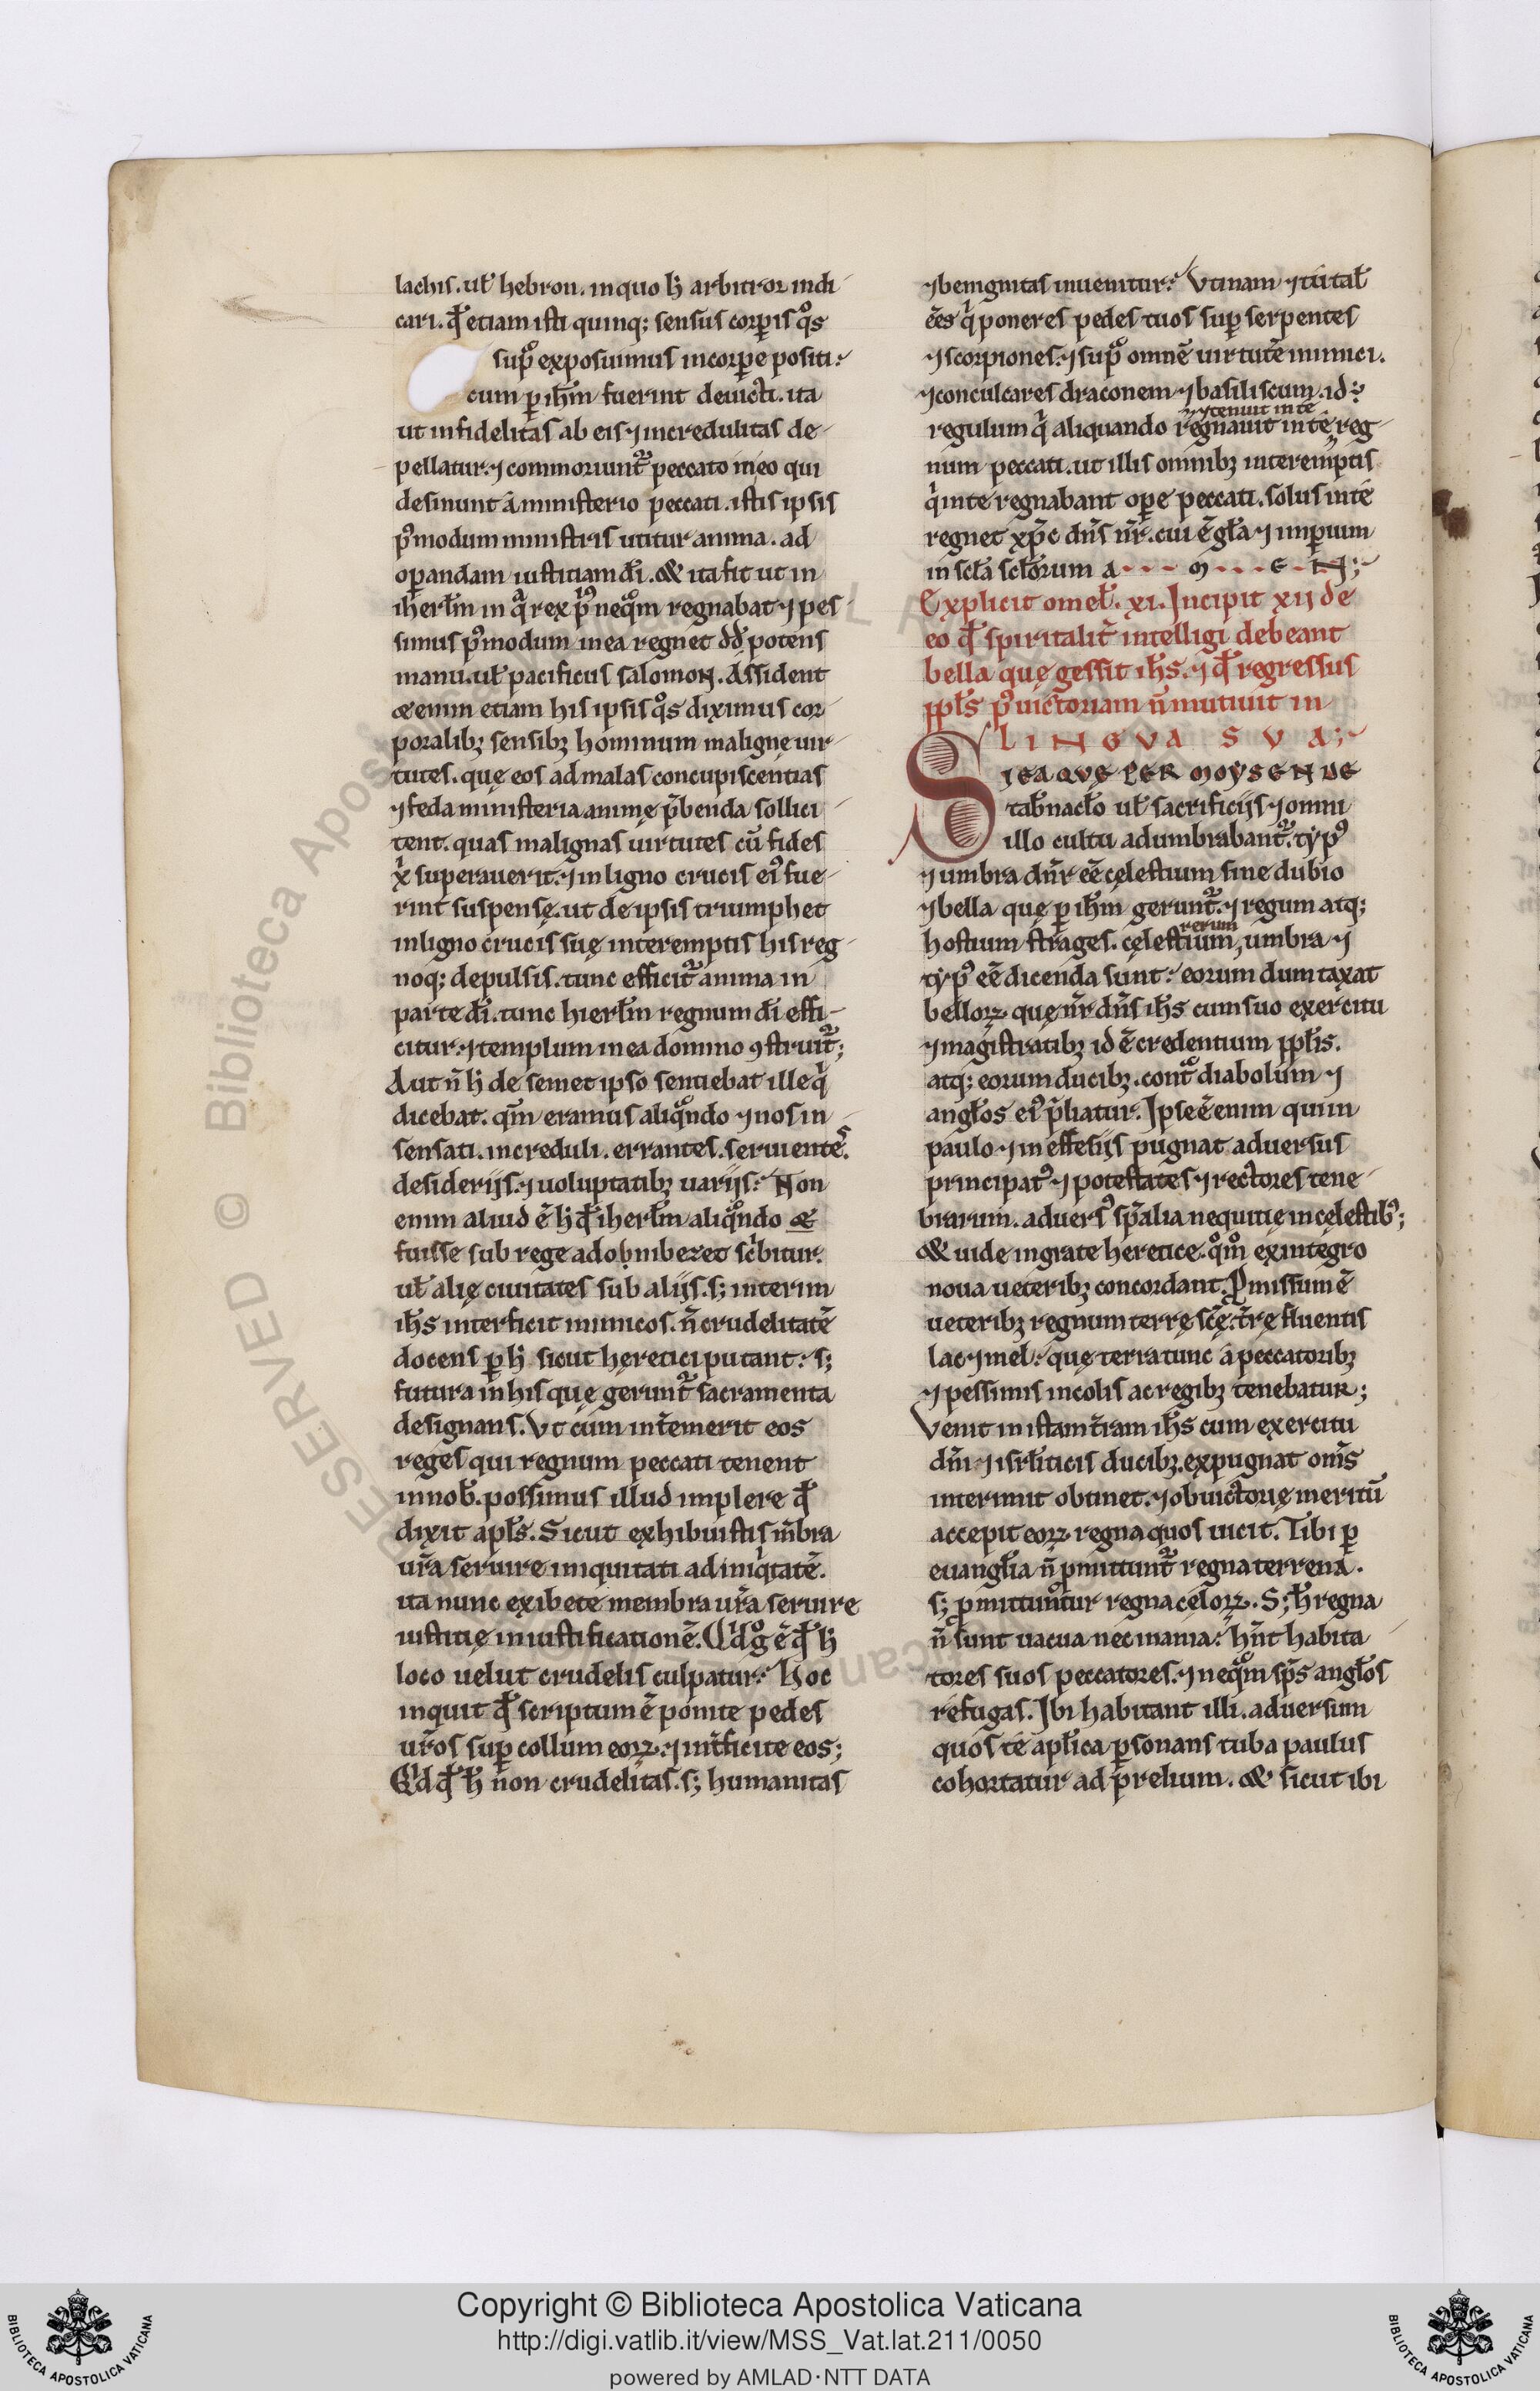 lachis. ul̛ hebron. in quo h̛ arbitror indi
cari. qd̛ etiam isti quinq; sensus corꝑis qͦs
supͣ exposuimus in corꝑe positi.
cum ꝑ ih̄m fuerint deuicti. ita
ut infidelitas ab eis ⁊ incredulitas de
pellatur. ⁊ commoriunt᷑ peccato in eo qui
desinunt a ministerio peccati. istis ipsis
pꝰmodum ministris utitur anima. ad
oꝑandam iustitiam dī. & ita fit ut in
ih̄erl̄m in qͣ rex pͥus neqͣm regnabat ⁊ pes
simus pꝰmodum in ea regnet dd̄ potens
manu. ul̛ pacificus salomon. Assident
æ enim etiam his ipsis qͦs diximus cor
poralibꝫ sensibꝫ hominum malignę uir
tutes. quę eos ad malas concupiscentias
⁊ feda ministeria animę p̄benda sollici
tent. quas malignas uirtutes cū fides
xͥ superauerit. ⁊ in ligno crucis eiꝰ fue
rint suspensę. ut de ipsis triumphet
in ligno crucis suę interemptis his reg
noq; depulsis. tunc efficit᷑ anima in
parte dī. tunc hierl̄m regnum dī effi
citur. ⁊ templum in ea domino ꝯstruit᷑;
Aut n̄ h̛ de semet ipso sentiebat ille qͥ
dicebat. qm̄ eramus aliqͣndo ⁊ nos in
sensati. increduli. errantes. seruientes.
desiderijs. ⁊ uoluptatibꝫ uarijs. Non
enim aliud ē h̛ qd̛ iherl̄m aliqͣndo æ
fuisse sub rege adobniberet scͥbitur.
ul̛ alię ciuitates sub alijs. s; interim
ih̄s interficit inimicos. n̄ crudelitatē
docens ꝑ h̛ sicut hęretici putant. s;
futura in his quę gerunt᷑ sacramenta
designans. Vt cum int̄emerit eos
reges qui regnum peccati tenent
in nob̛. possimus illud implere qd̛
dixit apl̄s. Sicut exhibuistis m̄bra
ur̄a seruire iniquitati ad iniqͥtatē.
ita nunc exibete membra ur̄a seruire
iustitię in iustificationē. Qͥd gͦ ē qd̛ h̛
loco uelut crudelis culpatur. Hoc
inquit qd̛ scriptum ē ponite pedes
ur̄os suꝑ collum eoꝝ. ⁊ int̄ficite eos;
Qͥd qd̛ h̛ non crudelitas. s; humanitas
⁊ benignitas inuenitur. Vtinam ⁊ tu tal̛
ēēs qͥ poneres pedes tuos suꝑ serpentes
⁊ scorpiones. ⁊ supͣ omnē uirtutē inimici.
⁊ conculcares draconem ⁊ basiliscum. id ÷
⁊ tenuit in te
regulum qͥ aliquando regnauit in te reg
num peccati. ut illis omnibꝫ interemptis
qͥ in te regnabant oꝑe peccati. solus in te
regnet xp̄c dn̄s nr̄. cui ē gl̄a ⁊ imꝑium
in scl̄a scl̄orum a · · · m · · · e · n;
Explicit omel̛. xi. Incipit xij de
eo qd̛ spiritalit᷑ intelligi debeant
bella quę gessit ih̄s. ⁊ qd̛ regressus
ppl̄s pꝰ uictoriam n̄ mutiuit in
LINGVA SVA;
SI EA QVĘ PER MOYSEN DE
tab̄nacl̄o ul̛ sacrificijs ⁊ omni
illo cultu adumbrabant᷑. typꝰ
⁊ umbra dn̄r eē cęlestium sine dubio
⁊ bella quę ꝑ ih̄m gerunt᷑. ⁊ regum atq;
rerum
hostium strages. cęlestium, umbra ⁊
typꝰ eē dicenda sunt. eorum dumtaxat
belloꝝ quę nr̄ dn̄s ih̄s cum suo exercitu
⁊ magistratibꝫ id ē credentium ppl̄is.
atq; eorum ducibꝫ. contͣ diabolum ⁊
angl̄os eiꝰ p̄liatur. Ipse ē enim qui in
paulo ⁊ in effesijs pugnat aduersus
principatꝰ ⁊ potestates ⁊ rectores tene
brarum. aduersꝰ sp̄alia nequitię in cęlestibꝰ;
& uide ingrate heretice. qͦmͦ ex integro
noua ueteribꝫ concordant. Ꝓmissum ē
ueteribꝫ regnum terrę scę̄. t̄rę fluentis
lac ⁊ mel. quę terra tunc a peccatoribꝫ
⁊ pessimis incolis ac regibꝫ tenebatur;
Venit in istam t̄ram ih̄s cum exercitu
dn̄i ⁊ isrl̄iticis ducibꝫ. expugnat om̄s
interimit obtinet. ⁊ ob uictorię meritū
accepit eoꝝ regna quos uicit. Tibi ꝑ
euangl̄ia n̄ ꝓmittunt᷑ regna terrena.
s; ꝓmittuntur regna celoꝝ. S; h̛ regna
n̄ sunt uacua nec inania. hn̄t habita
tores suos peccatores. ⁊ neqͣm sp̄s angl̄os
refugas. Ibi habitant illi. aduersum
quos te apl̄ica ꝑsonans tuba paulus
cohortatur ad prelium. & sicut ibi
Copyright © Biblioteca Apostolica Vaticana
http://digi.vatlib.it/view/MSS_Vat.lat.211/0050
powered by AMLAD·NTT DATA
BIBLIOTECA APOSTOLICA VATICANA
BIBLIOTECA APOSTOLICA VATICANA